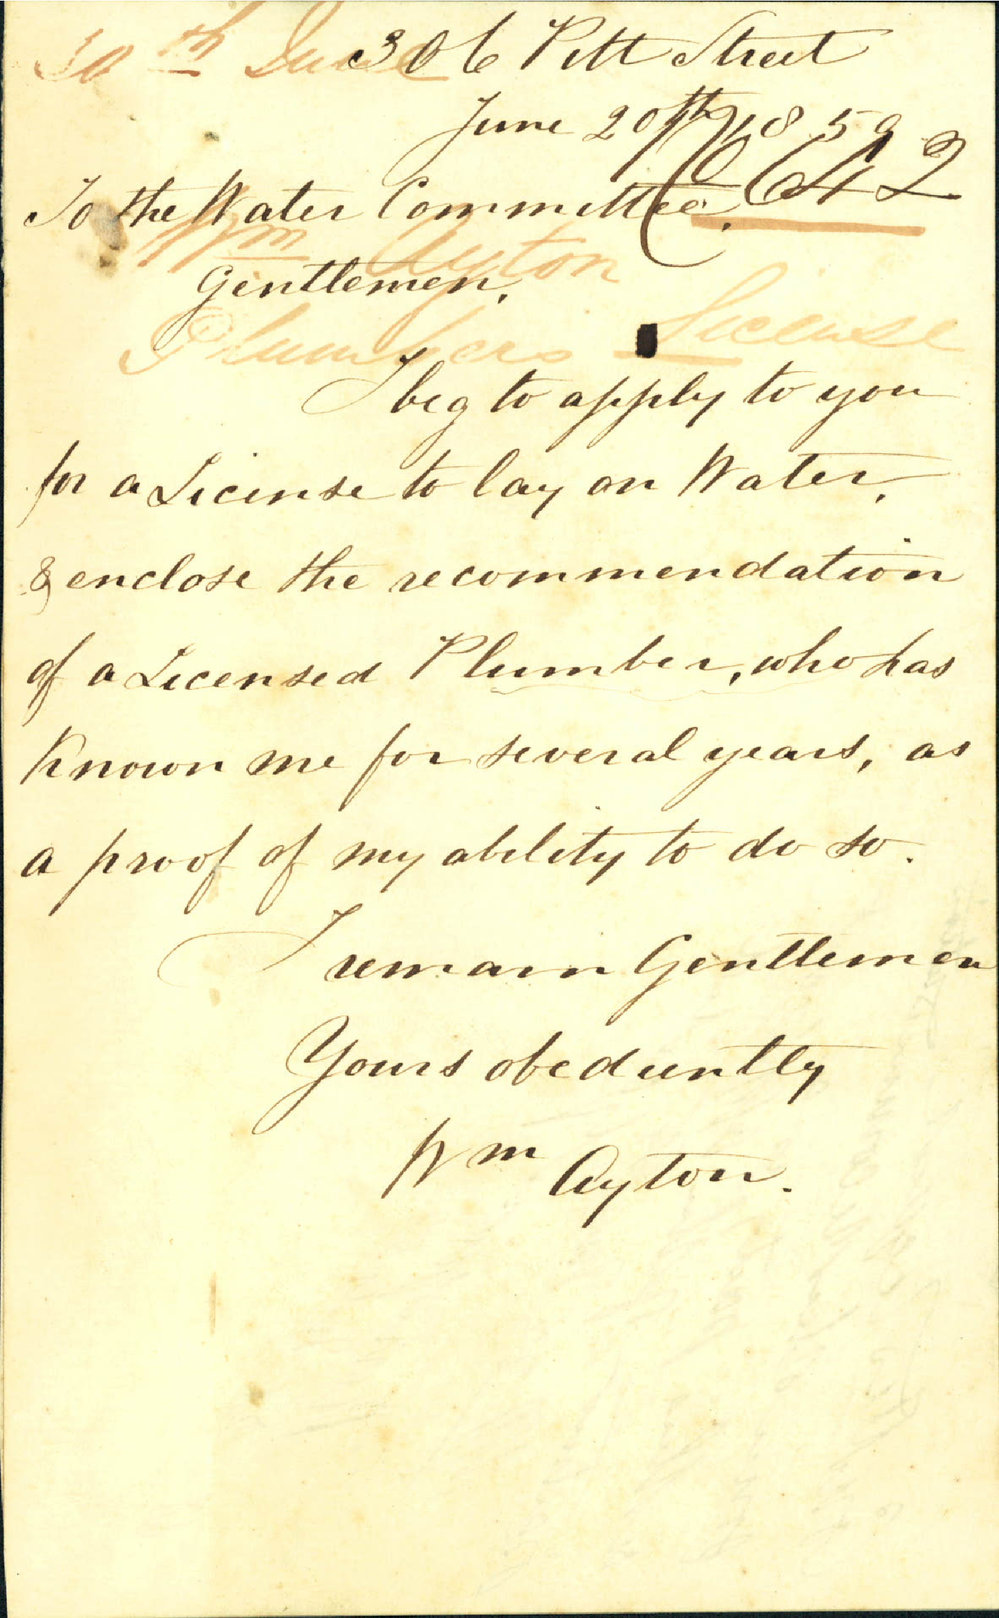 30th June
306 Pitt Street
June 20th 1859
642
To the Water Committee.
Wm Ayton
Gentlemen,
Plumbers License
I beg to apply to you
for a License to lay on Water,
& enclose the recommendation
of a Licensed Plumber, who has
known me for several years, as
a proof of my ability to do so.
I remain Gentlemen
Yours obediently
Wm Ayton.